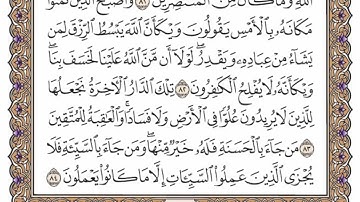 ٱللَّهِ وَمَا كَانَ مِنَ ٱلْمُنتَصِرِينَ ٨١ وَأَصْبَحَ ٱلَّذِينَ تَمَنَّوْا۟
مَكَانَهُۥ بِٱلْأَمْسِ يَقُولُونَ وَيْكَأَنَّ ٱللَّهَ يَبْسُطُ ٱلرِّزْقَ لِمَن
يَشَآءُ مِنْ عِبَادِهِۦ وَيَقْدِرُ ۖ لَوْلَآ أَن مَّنَّ ٱللَّهُ عَلَيْنَا لَخَسَفَ بِنَا ۖ
وَيْكَأَنَّهُۥ لَا يُفْلِحُ ٱلْكَٰفِرُونَ ٨٢ تِلْكَ ٱلدَّارُ ٱلْءَاخِرَةُ نَجْعَلُهَا
لِلَّذِينَ لَا يُرِيدُونَ عُلُوًّا فِى ٱلْأَرْضِ وَلَا فَسَادًا ۚ وَٱلْعَٰقِبَةُ لِلْمُتَّقِينَ
٨٣ مَن جَآءَ بِٱلْحَسَنَةِ فَلَهُۥ خَيْرٌ مِّنْهَا ۖ وَمَن جَآءَ بِٱلسَّيِّئَةِ فَلَا
يُجْزَى ٱلَّذِينَ عَمِلُوا۟ ٱلسَّيِّـَٔاتِ إِلَّا مَا كَانُوا۟ يَعْمَلُونَ ٨٤